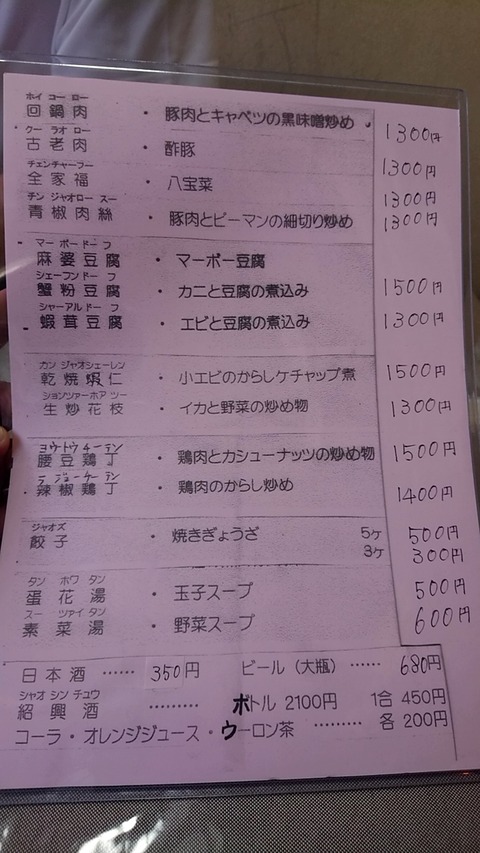 ホイ コー ロー
回鍋肉 ・ 豚肉とキャベツの黒味噌炒め 1300円
クー ラオ ロー
古老肉 ・ 酢豚 1300円
チェンチャーフー
全家福 ・ 八宝菜 1300円
チン ジャオロー スー
青椒肉絲 ・ 豚肉とピーマンの細切り炒め 1300円
マー ボー ドー フ
麻婆豆腐 ・ マーボー豆腐
シェーフンドー フ
蟹粉豆腐 ・ カニと豆腐の煮込み 1500円
シャーアルドー フ
蝦茸豆腐 ・ エビと豆腐の煮込み 1300円
カン ジャオシェーレン
乾焼蝦仁 ・ 小エビのからしケチャップ煮 1500円
ションツァーホア ツー
生炒花枝 ・ イカと野菜の炒め物 1300円
ヨウトウチーテン
腰豆鶏丁 ・ 鶏肉とカシューナッツの炒め物 1500円
ラージョーチーテン
辣椒鶏丁 ・ 鶏肉のからし炒め 1400円
ジャオズ
餃子 ・ 焼きぎょうざ 5ヶ 500円
3ヶ 300円
タン ホワ タン
蛋花湯 ・ 玉子スープ 500円
スー ツァイタン
素菜湯 ・ 野菜スープ 600円
日本酒 …… 350円 ビール（大瓶） …… 680円
シャオ シン チュウ
紹興酒 ……… ボトル 2100円 1合 450円
コーラ・オレンジジュース・ウーロン茶 ……… 各 200円